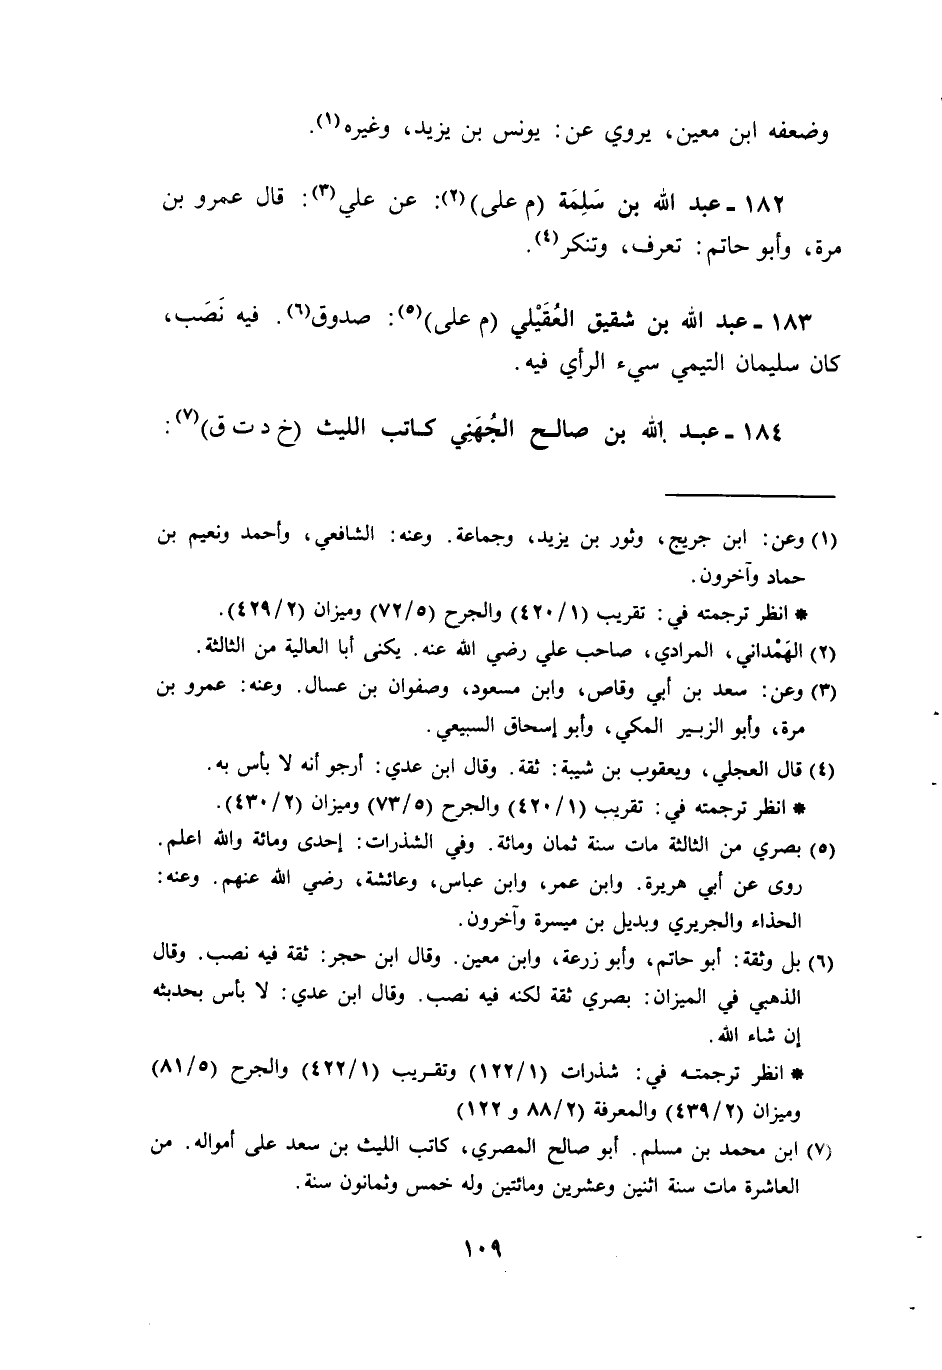 وضعفه ابن معين، يروي عن: يونس بن يزيد، وغيره(١).
١٨٢ ـ عبد الله بن سَلِمَة (م على)(٢): عن علي(٣): قال عمرو بن
مرة، وأبو حاتم: تعرف، وتنكر(٤).
١٨٣ ـ عبد الله بن شقيق العُقَيْلي (م على)(٥): صدوق(٦). فيه نَصَب،
كان سليمان التيمي سيء الرأي فيه.
١٨٤ ـ عبد الله بن صالح الجُهَنِي كاتب الليث (خ د ت ق)(٧):
(١) وعن: ابن جريج، وثور بن يزيد، وجماعة. وعنه: الشافعي، وأحمد ونعيم بن
حماد وآخرون.
* انظر ترجمته في: تقريب (٤٢٠/١) والجرح (٧٢/٥) وميزان (٤٢٩/٢).
(٢) الهَمْداني، المرادي، صاحب علي رضي الله عنه. يكنى أبا العالية من الثالثة.
(٣) وعن: سعد بن أبي وقاص، وابن مسعود، وصفوان بن عسال. وعنه: عمرو بن
مرة، وأبو الزبير المكي، وأبو إسحاق السبيعي.
(٤) قال العجلي، ويعقوب بن شيبة: ثقة. وقال ابن عدي: أرجو أنه لا بأس به.
* انظر ترجمته في: تقريب (٤٢٠/١) والجرح (٧٣/٥) وميزان (٤٣٠/٢).
(٥) بصري من الثالثة مات سنة ثمان ومائة. وفي الشذرات: إحدى ومائة والله اعلم.
روى عن أبي هريرة. وابن عمر، وابن عباس، وعائشة، رضي الله عنهم. وعنه:
الحذاء والجريري وبديل بن ميسرة وآخرون.
(٦) بل وثقة: أبو حاتم، وأبو زرعة، وابن معين. وقال ابن حجر: ثقة فيه نصب. وقال
الذهبي في الميزان: بصري ثقة لكنه فيه نصب. وقال ابن عدي: لا بأس بحديثه
إن شاء الله.
* انظر ترجمته في: شذرات (١٢٢/١) وتقريب (٤٢٢/١) والجرح (٨١/٥)
وميزان (٤٣٩/٢) والمعرفة (٨٨/٢ و ١٢٢)
(٧) ابن محمد بن مسلم. أبو صالح المصري، كاتب الليث بن سعد على أمواله. من
العاشرة مات سنة اثنين وعشرين ومائتين وله خمس وثمانون سنة.
١٠٩